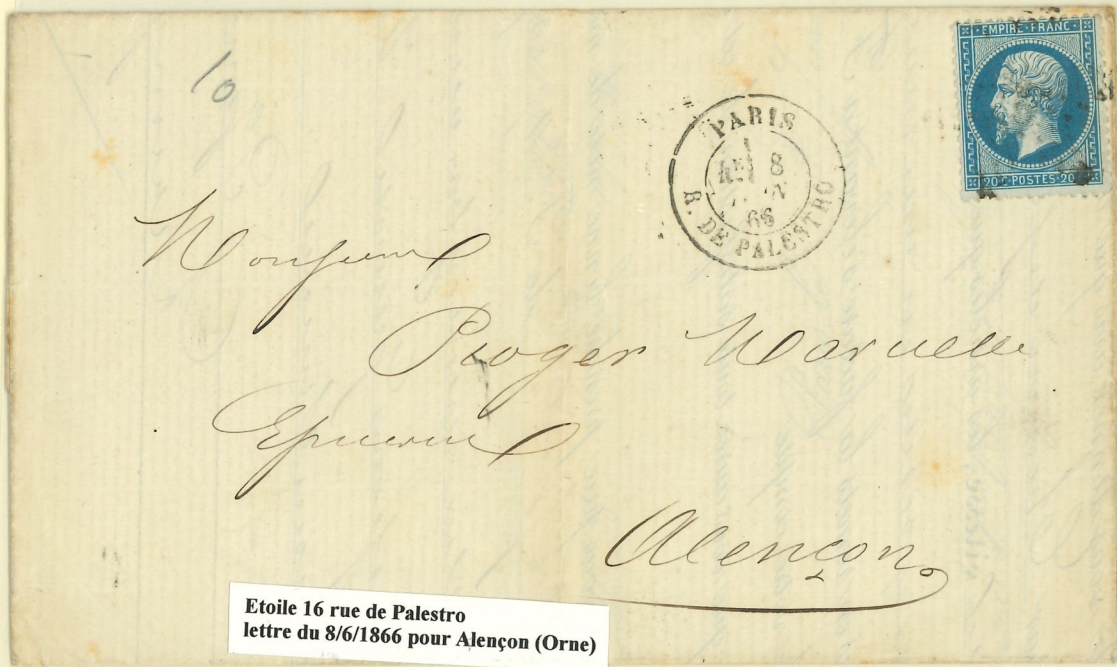 10
EMPIRE FRANC
20 C POSTES 20 C
PARIS
8
66
R. DE PALESTRO
Monsieur
Proger Maruelle
Alençon
Etoile 16 rue de Palestro
lettre du 8/6/1866 pour Alençon (Orne)